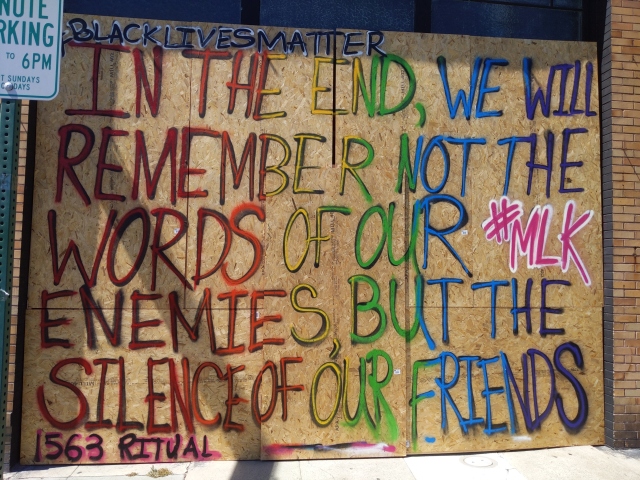 NUTE
RKING
TO 6PM
T SUNDAYS
#BLACKLIVESMATTER
IN THE END, WE WILL
REMEMBER NOT THE
WORDS OF OUR #MLK
ENEMIES, BUT THE
SILENCE OF OUR FRIENDS
1563 RITUAL